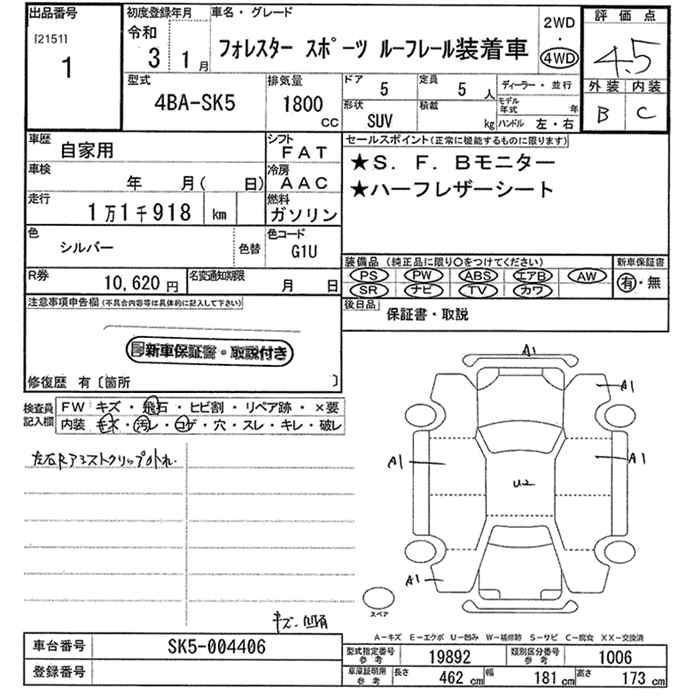 出品番号
[2151]
1
初度登録年月
令和
3 1月
車名・グレード
フォレスター スポーツ ルーフレール装着車
2WD
・
4WD
評価点
4.5
外装 内装
B C
型式
4BA-SK5
排気量
1800
cc
ドア
5
定員
5人
形状
SUV
積載
kg
ディーラー・並行
モデル年式 年
ハンドル 左・右
車歴
自家用
シフト
FAT
車検
年 月( 日)
冷房
AAC
走行
1万1千918 km
燃料
ガソリン
色
シルバー
色替
色コード
G1U
R券
10,620円
名変通知期限
月 日
セールスポイント(正常に機能するものに限ります)
★S.F.Bモニター
★ハーフレザーシート
装備品(純正品に限り○をつけてください)
PS PW ABS エアB AW
SR ナビ TV カワ
新車保証書
有・無
後日品
保証書・取説
注意事項申告欄(不具合内容等は具体的に記入して下さい)
新車保証書・取説付き
修復歴 有〔箇所 〕
検査員記入欄
FW キズ・飛石・ヒビ割・リペア跡・×要
内装 キズ・汚レ・コゲ・穴・スレ・キレ・破レ
左右Rアシストクリップ外れ.
キズ.凹有
A1
A1
A1
A1
U2
A1
スペア
A-キズ E-エクボ U-凹み W-補修跡 S-サビ C-腐食 XX-交換済
車台番号
SK5-004406
登録番号
型式指定番号
参考
19892
類別区分番号
参考
1006
車庫証明用
参考
長さ
462 cm
幅
181 cm
高さ
173 cm